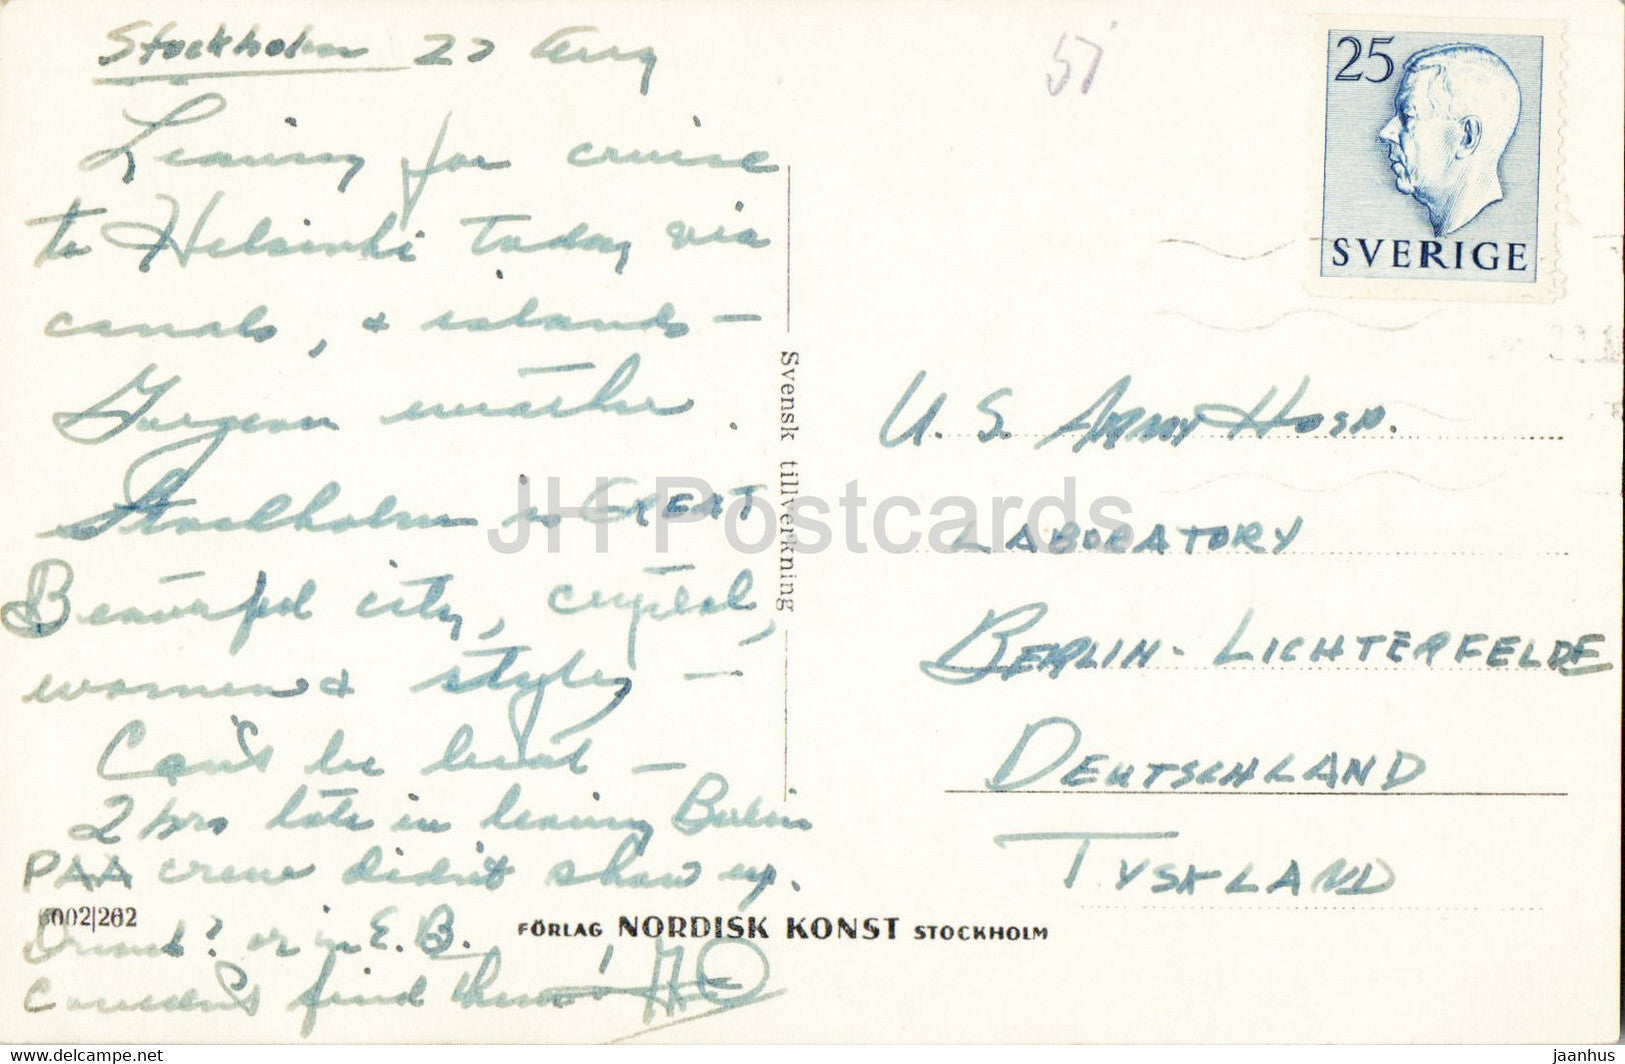 Stockholm 27 Aug
Leaving for cruise
to Helsinki today via
canals, & islands —
Gorgeous weather.
Stockholm is GREAT
Beautiful city, crystal,
women & styles —
Can't be beat —
2 hrs late in leaving Berlin
PAA crew didn't show up.
Drunk? or in E. B.,
Couldn't find them
6002/202
Svensk tillverkning
FÖRLAG NORDISK KONST STOCKHOLM
57
25
SVERIGE
U.S. ARMY HOSP.
LABORATORY
BERLIN-LICHTERFELDE
DEUTSCHLAND
TYSKLAND
JH Postcards
www.delcampe.net
jaanhus